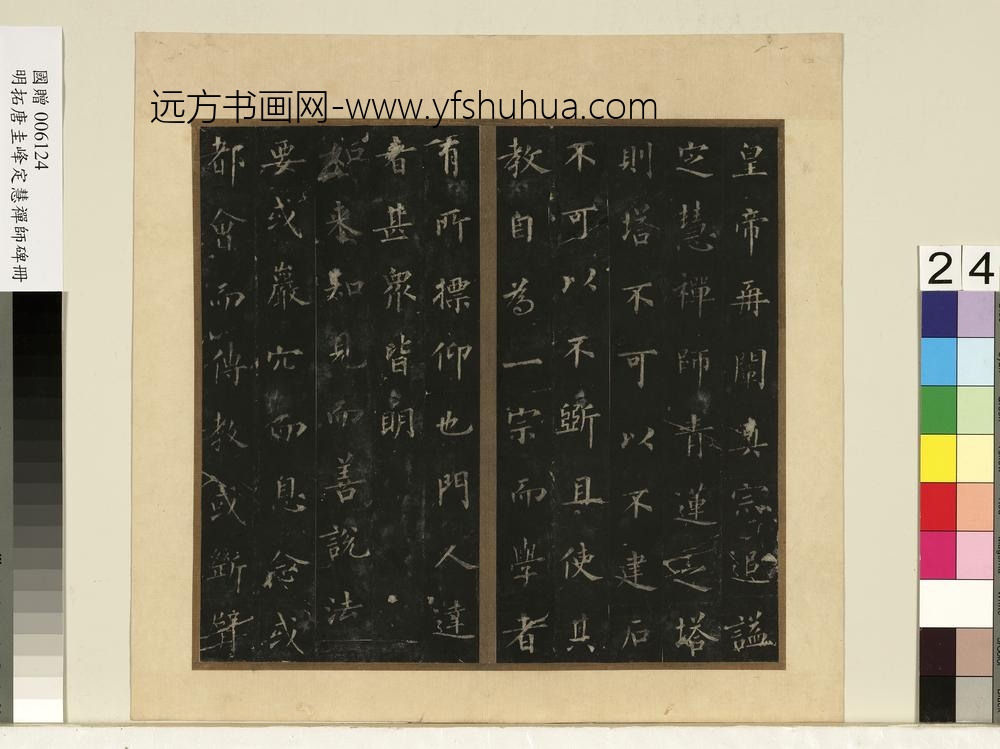 远方书画网-www.yfshuhua.com
國贈 006124
明拓唐圭峰定慧禪師碑冊
皇帝再闡真宗追諡
定慧禪師青蓮之塔
則塔不可以不建石
不可以不斵且使其
教自為一宗而學者
有所標仰也門人達
者甚衆皆明
如来知見而善說法
要或巖穴而息念或
都會而傳教或斷臂
2 4